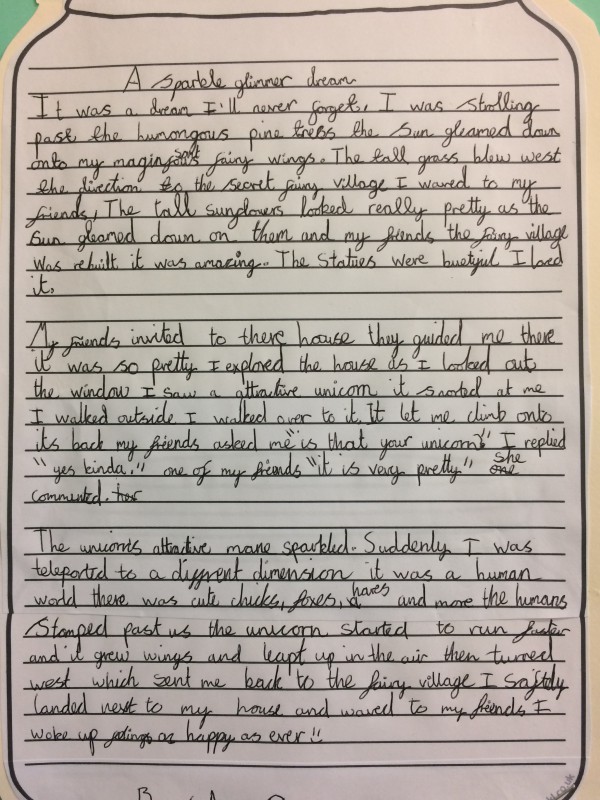 A sparkle glimmer dream
It was a dream I'll never forget. I was strolling
past the humongous pine tress the sun gleamed down
onto my fairy wings. The tall grass blew west
the direction to the secret fairy village I waved to my
friends, The tall sunflowers looked really pretty as the
sun gleamed down on them and my friends the fairy village
was rebuilt it was amazing.. The statues were buetiful I loved
it.
My friends invited to there house they guided me there
it was so pretty I explored the house as I looked out
the window I saw a attractive unicorn it snorted at me
I walked outside I walked over to it. It let me climb onto
its back my friends asked me "is that your unicorn?" I replied
"yes kinda." one of my friends "it is very pretty" she
commented.
The unicorns attractive mane sparkled. Suddenly I was
teleported to a diffrent dimension it was a human
world there was cute chicks, foxes, hares and more the humans
Stomped past us the unicorn started to run faster
and it grew wings and leapt up in the air then turned
west which sent me back to the fairy village I
landed next to my house and waved to my friends I
woke up as happy as ever!!